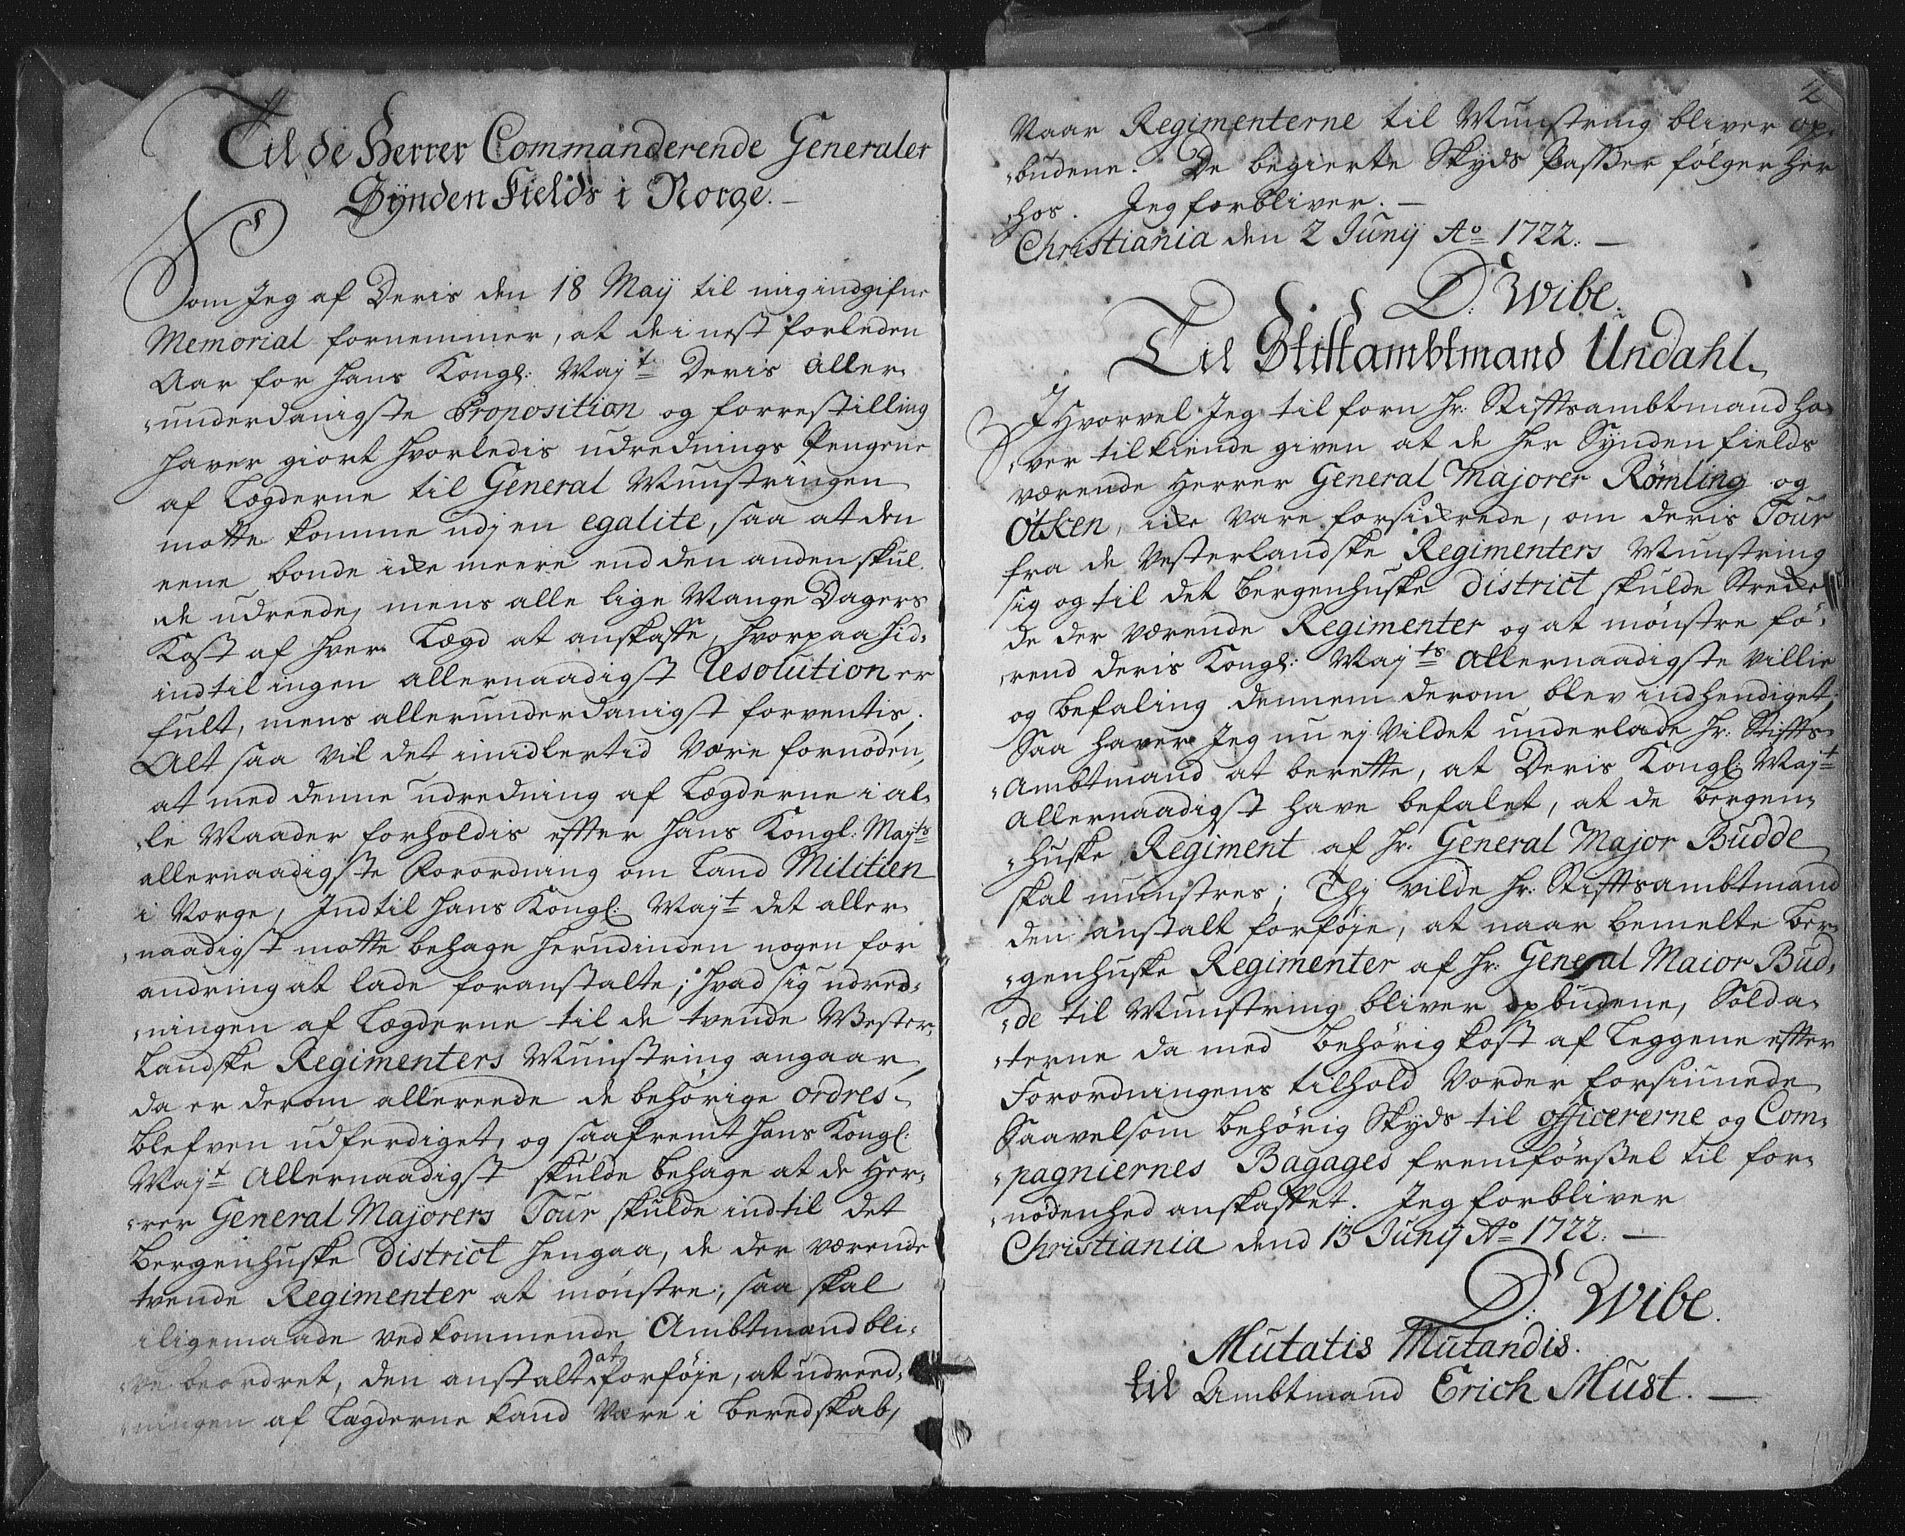 Til de Herrer Commanderende Generaler
Synden Fields i Norge. —
Som Jeg af Deris den 18 Maij til mig indgifne
Memorial fornemmer, at de i nest forleden
Aar for Hans Kongl: Maj:t Deris Aller,
,underdanigste Proposition og forrestilling
haver giort hvorledis udrednings Pengene
af Lægderne til General Munstringen
motte komme udj en egalite, saa at den
eene bonde icke meere end den anden skul,
,de udreede, mens alle lige Mange Dagers
Kost af hver Lægd at anskaffe, hvorpaa hid,
indtil ingen allernaadigst Resolution er
fult, mens allerunderdanigst forventis;
Alt saa vil det imidlertid være fornøden,
at med denne udredning af Lægderne i al,
,le Maader forholdis effter Hans Kongl. Maj:ts
allernaadigste Forordning om Land Militien
i Norge, Indtil Hans Kongl: Maj:t det aller,
,naadigst motte behage herudinden nogen for
andring at lade foranstalte; hvad sig udred,
,ningen af Lægderne til de tvende Wester,
Landske Regimenters Munstring angaar,
da er derom allereede de behörige ordres
blefven udferdiget, og saafremt Hans Kongl:
Maj:t Allernaadigst skulde behage at de Her,
,rer General Majorers Tour skulde indtil det
Bergenhuske District hengaa, de der værende
tvende Regimenter at mønstre; saa skal
iligemaade vedkommende Ambtmand bli,
,ve beordret, den anstalt at forföje, at udreed,
,ningen af Lægderne kand være i beredskab,
2
Naar Regimenterne til Munstring bliver op,
,budene. De begierte Skyds Passer følger her
hos. Jeg forbliver. —
Christiania den 2 Junij Ao 1722. —
D: Wibe.
Til Stiftambtmand Undahl.
Ihvorvel Jeg tilforn Hr: Stifftsambtmand ha,
,ver tilkiende given at de her Synden fields
værende Herrer General Majorer Römling og
Ötken, icke vare forsickrede, om deris Tour
fra de Vesterlandske Regimenters Munstring
sig og til det Bergenhuske District skulde Strecke
de der værende Regimenter og at mönstre fö,
,rend deris Kongl: Maj:ts Allernaadigste Villie
og Befaling dennem derom blev indhendiget,
Saa haver Jeg nu ej vildet underlade Hr: Stiffts,
,Ambtmand at berette, at Deris Kongl: Maj:t
Allernaadigst have befalet, at de Bergen,
,huske Regiment af Hr: General Major Budde
skal munstres; Thj vilde Hr: Stifftsambtmand
den anstalt forföje, at naar bemelte Ber,
,genhuske Regimenter af Hr: General Maior Bud,
,de til Munstring bliver opbudene, Solda,
,terne da med Behörig kost af Leggene effter
Forordningens tilhold vorder forsiunede
Saavelsom behörig Skyds til officererne og Com,
,pagniernes Bagages fremförßel til for,
,nödenhed anskaffet. Jeg forbliver
Christiania dend 13 Junij Ao 1722. —
D: Wibe.
Mutatis Mutandis.
til Ambtmand Erich Must. —